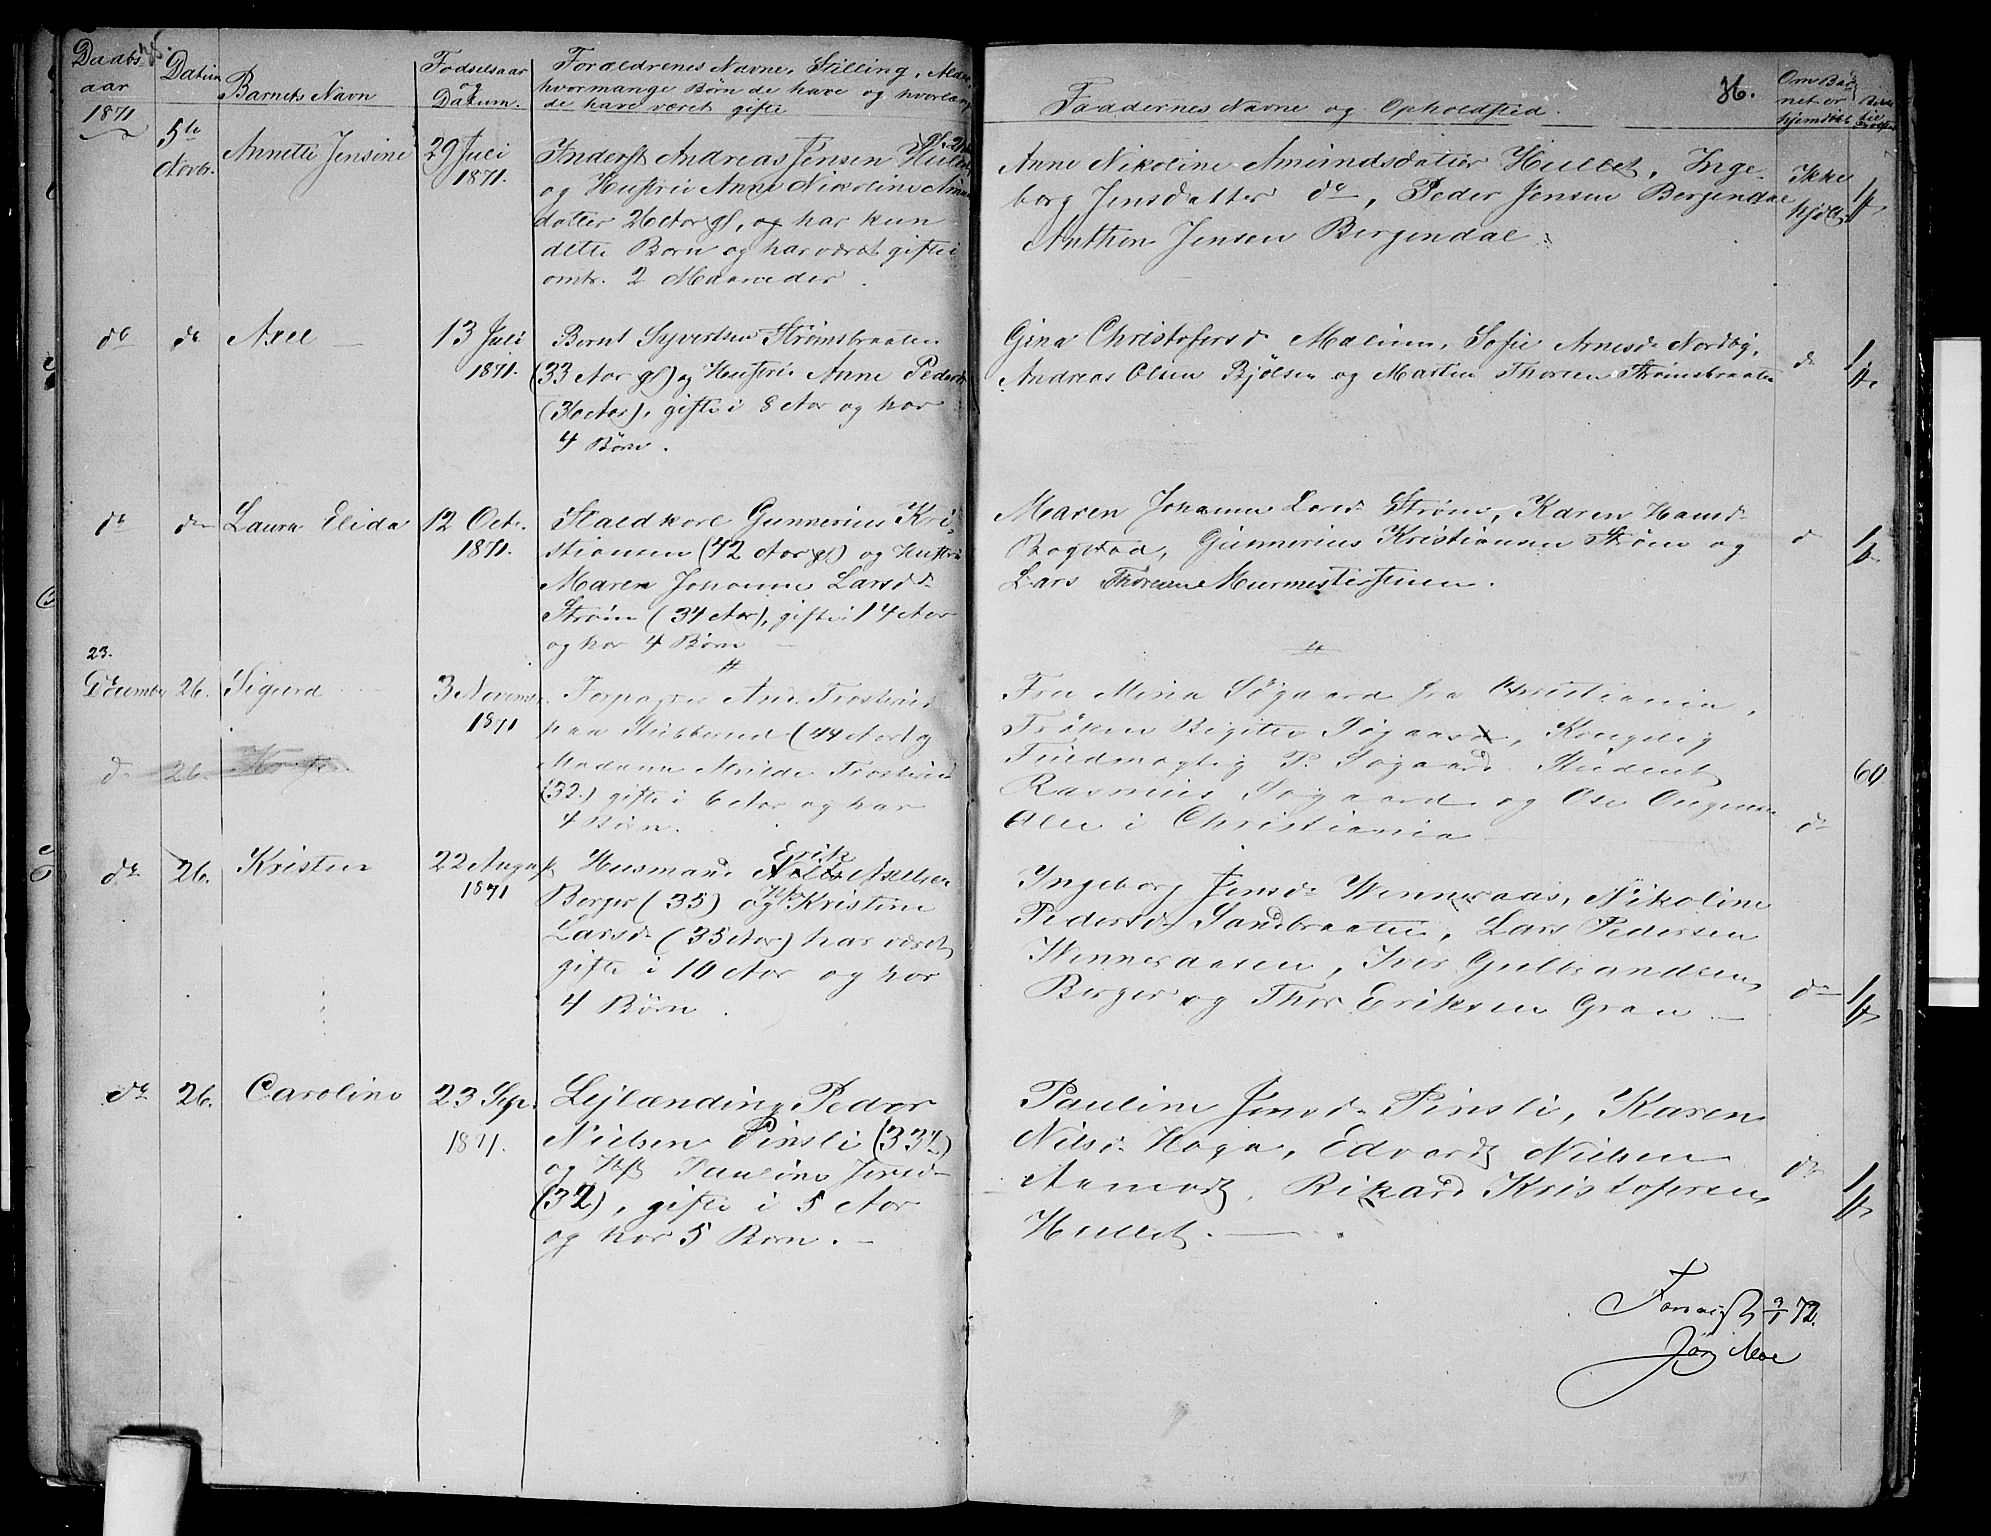 Daabs
aar
1871
Datum
Barnets Navn
Fødselsaar
og
Datum.
Forældrenes Navne, Stilling, Alder
hvormange Børn de have og hvorlænge
de have været gifte
5te
Novbr.
Annette Jensine
29 Juli
1871.
Inderst Andreas Jensen Hullet
og Hustru Anne Nikoline Amunds
datter 26 Aar gl, og har kun
dette Barn og har været gifte
omtr. 2 Maaneder.
do do Axel
13 Juli
1871.
Bernt Syvertsen Strømsbraaten
(33 Aar gl) og Hustru Anne Pedersd
(36 Aar), gifte i 8 Aar og har
4 Børn.
do do Laura Elida
12 Oct.
1871.
Staldkarl Gunnerius Kri
stiansen (42 Aar gl) og Hustru
Maren Johanne Larsd.
Strøm (34 Aar), gifte i 14 Aar
og har 4 Børn
23.
Decemb. 26. Sigurd
3 November
1871
Forpagter And. Frosterud
paa Stubberud (44 Aar) og
Madame Milde Frosterud
(32) gifte i 6 Aar og har
4 Børn.
do 26.
do 26. Kristen
22 August
1871
Husmand Erik Axelsen
Berger (35) og Kristine
Larsd. (35 Aar) har været
gifte i 10 Aar og har
4 Børn.
do 26. Caroline
23 Sep.
1871.
Lejlænding Peder
Nielsen Pinsli (33)
og Hst Pauline Jensd.
(32), gifte i 5 Aar
og har 5 Børn.
36.
Faddernes Navne og Opholdsted.
Om Bar
net er
hjemdøbt
Anne Nikoline Amundsdatter Hullet, Inge-
borg Jensdatter do, Peder Jensen Bergendal
Anthon Jensen Bergendal.
Ikke
hjdbt
Gina Christofersd. Malum, Sofie Arnesd. Nordby,
Andreas Olsen Bjølsen og Martin Thorsen Strømsbraaten
do
Maren Johanne Larsd. Strøm, Karen Hansd.
Bogstad, Gunnerius Kristiansen Strøm og
Lars Thoresen Murmesterstuen.
d
Fru Mina Søgaard fra Christiania,
Frøken Birgitte Søgaard, Kongelig
Fuldmægtig P. Søgaard. Student
Rasmus Søgaard og Ose
Alle i Christiania
do
60
Ingeborg Jensd. Wenneraas, Nikoline
Pedersd. Sandbraaten, Lars Pedersen
Wenneraasen, Iver Gulbrandsen
Berger og Thor Eriksen Gran
do
Pauline Jensd. Pinsli, Karen
Nilsd. Haga, Edvardt Nielsen
Aamodt, Rikard Kristofersen
Hullet.
do
Forevist 3/1 72.
Jørg Moe